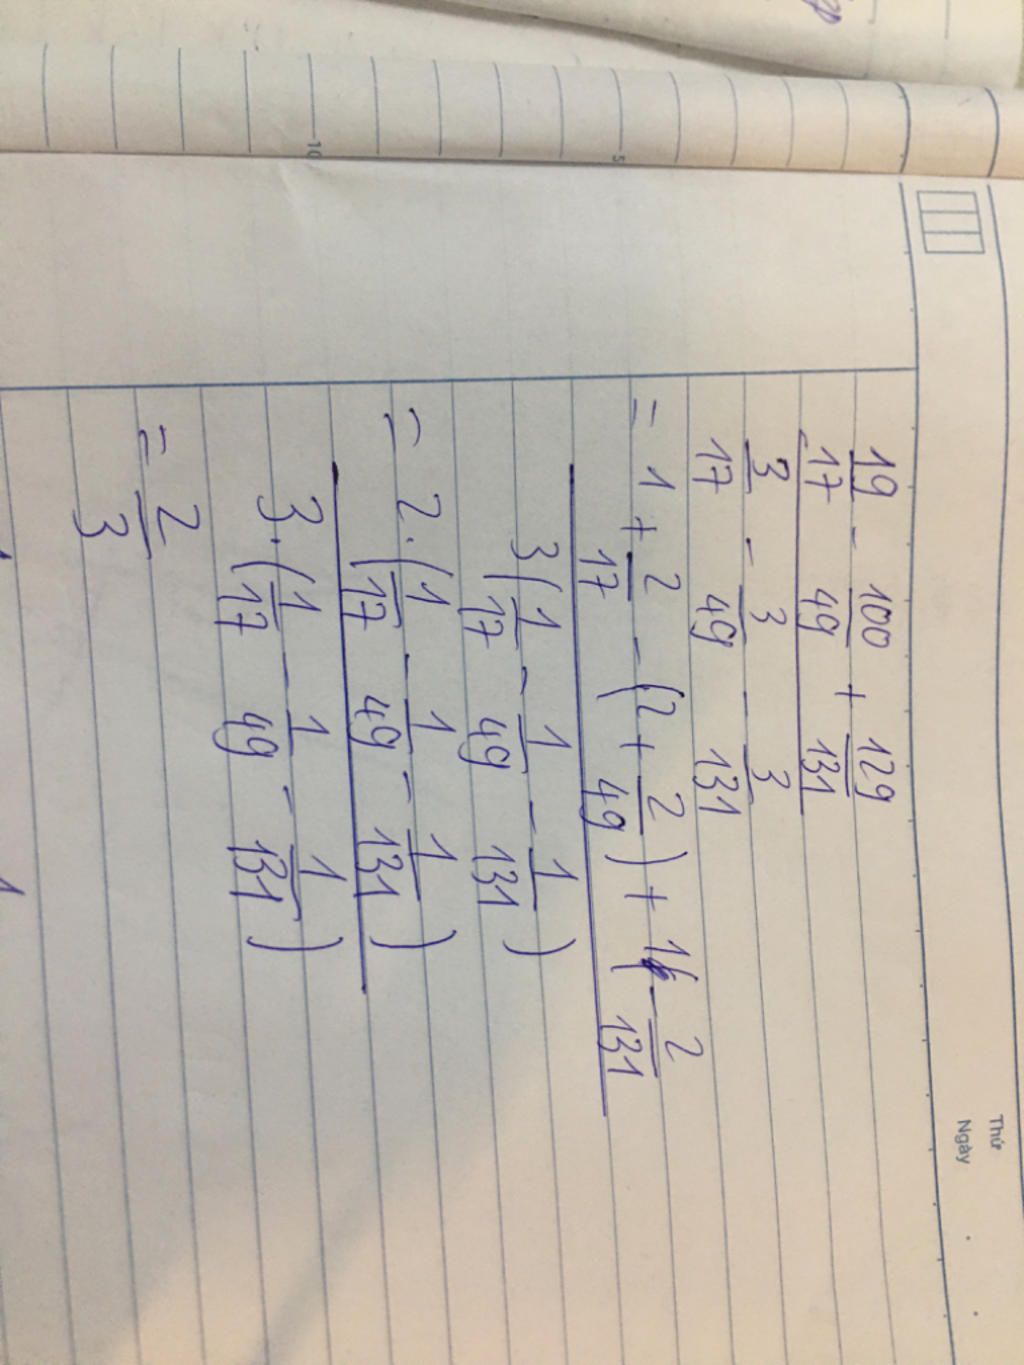 Thứ
Ngày
19/17 - 100/49 + 129/131
3/17 - 3/49 - 3/131
= 1 + 2/17 - (2 + 2/49) + (1 - 2/131)
3(1/17 - 1/49 - 1/131)
= 2.(1/17 - 1/49 - 1/131)
3.(1/17 - 1/49 - 1/131)
= 2/3
5
10